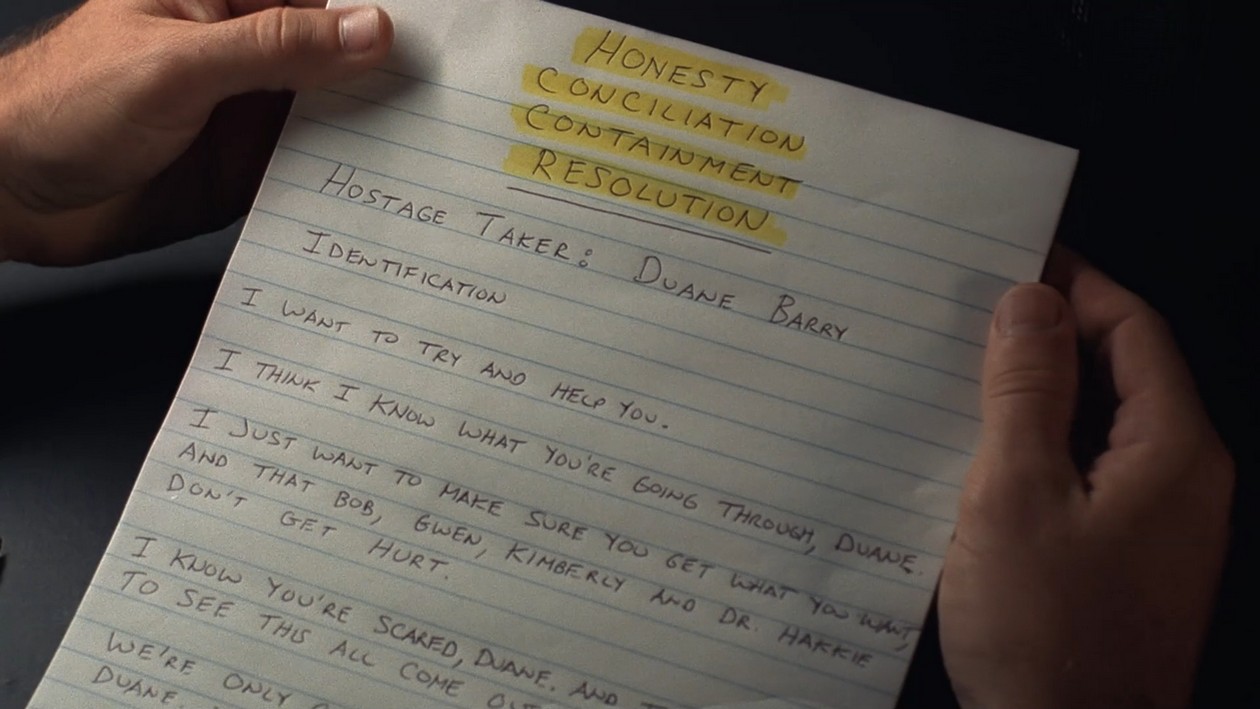 HONESTY
CONCILIATION
CONTAINMENT
RESOLUTION
HOSTAGE TAKER: DUANE BARRY
IDENTIFICATION
I WANT TO TRY AND HELP YOU.
I THINK I KNOW WHAT YOU'RE GOING THROUGH, DUANE.
I JUST WANT TO MAKE SURE YOU GET WHAT YOU WANT,
AND THAT BOB, GWEN, KIMBERLY AND DR. HAKKIE
DON'T GET HURT.
I KNOW YOU'RE SCARED, DUANE. AND
TO SEE THIS ALL COME
WE'RE ONLY
DUANE.